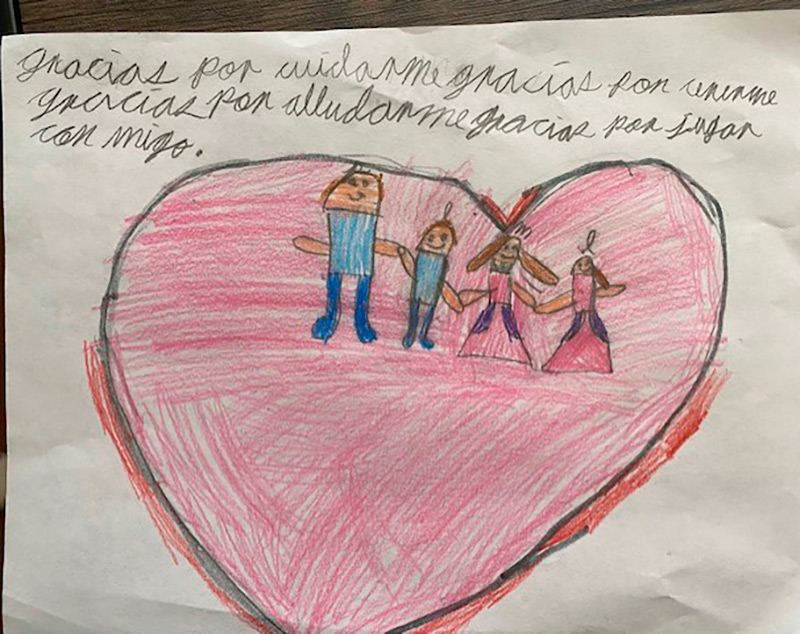 gracias por cuidarme gracias por
gracias por alludarme gracias por jugar
con migo.